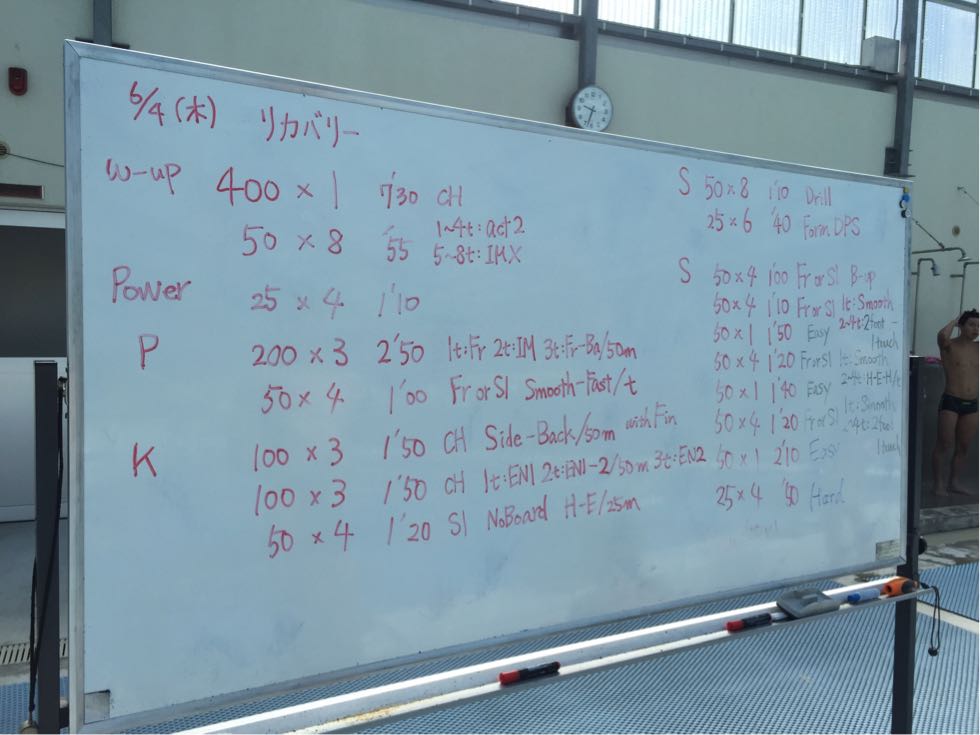 6/4 (木) リカバリー
W-up 400 × 1 7'30 CH
50 × 8 '55 1~4t: act2
5~8t: IMX
Power 25 × 4 1'10
P 200 × 3 2'50 1t:Fr 2t:IM 3t:Fr-Ba/50m
50 × 4 1'00 Fr or S1 Smooth-Fast/t
K 100 × 3 1'50 CH Side-Back/50m with Fin
100 × 3 1'50 CH 1t:EN1 2t:EN1-2/50m 3t:EN2
50 × 4 1'20 S1 NoBoard H-E/25m
S 50 × 8 1'10 Drill
25 × 6 '40 Form DPS
S 50 × 4 1'00 Fr or S1 B-up
50 × 4 1'10 Fr or S1 1t: Smooth
2~4t: 2foot-
1touch
50 × 1 1'50 Easy
50 × 4 1'20 Fr or S1 1t: Smooth
2~4t: H-E-H/t
50 × 1 1'40 Easy
50 × 4 1'20 Fr or S1 1t: Smooth
2~4t: 2foot
1touch
50 × 1 2'10 Easy
25 × 4 '50 Hard